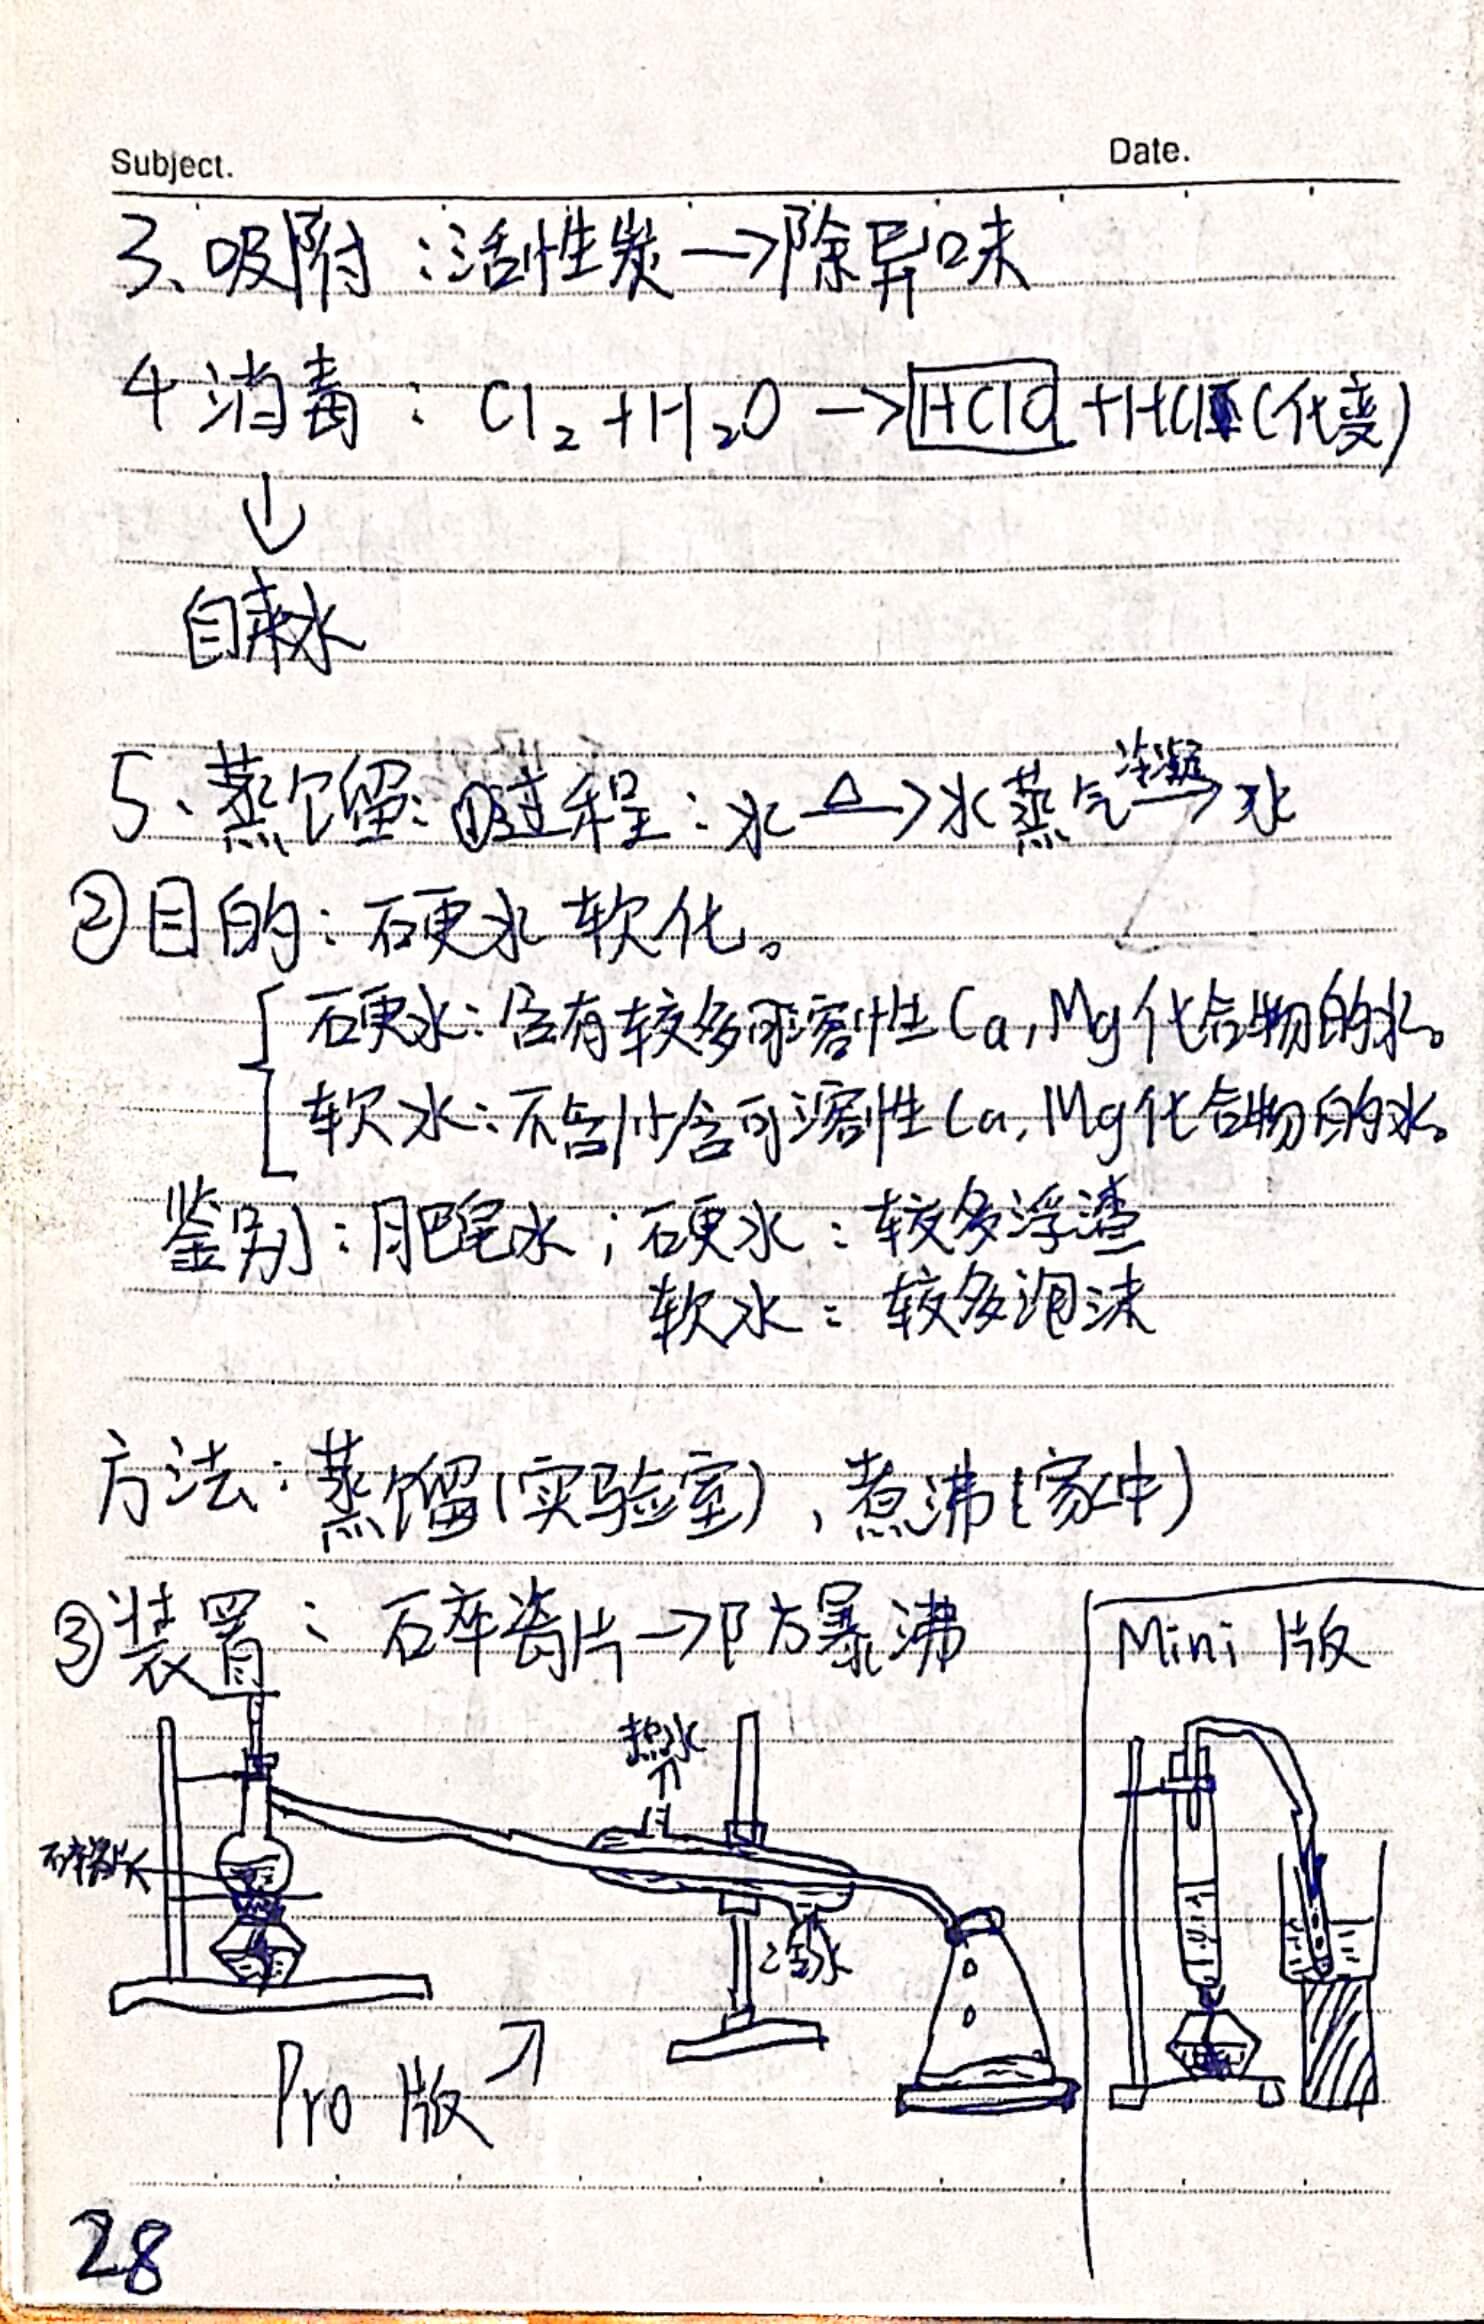 Subject.
Date.
3、吸附：活性炭→除异味
4 消毒：Cl₂+H₂O→HClO+HCl(化变)
↓
自来水
5、蒸馏：①过程：水 △→水蒸气 冷凝→水
②目的：硬水软化。
硬水：含有较多可溶性Ca,Mg化合物的水。
软水：不含/少含可溶性Ca,Mg化合物的水。
鉴别：肥皂水；硬水：较多浮渣
软水：较多泡沫
方法：蒸馏(实验室)，煮沸(家中)
③装置：碎瓷片→防暴沸
Mini 版
热水
↑
碎瓷片
冷水
Pro 版↗
28